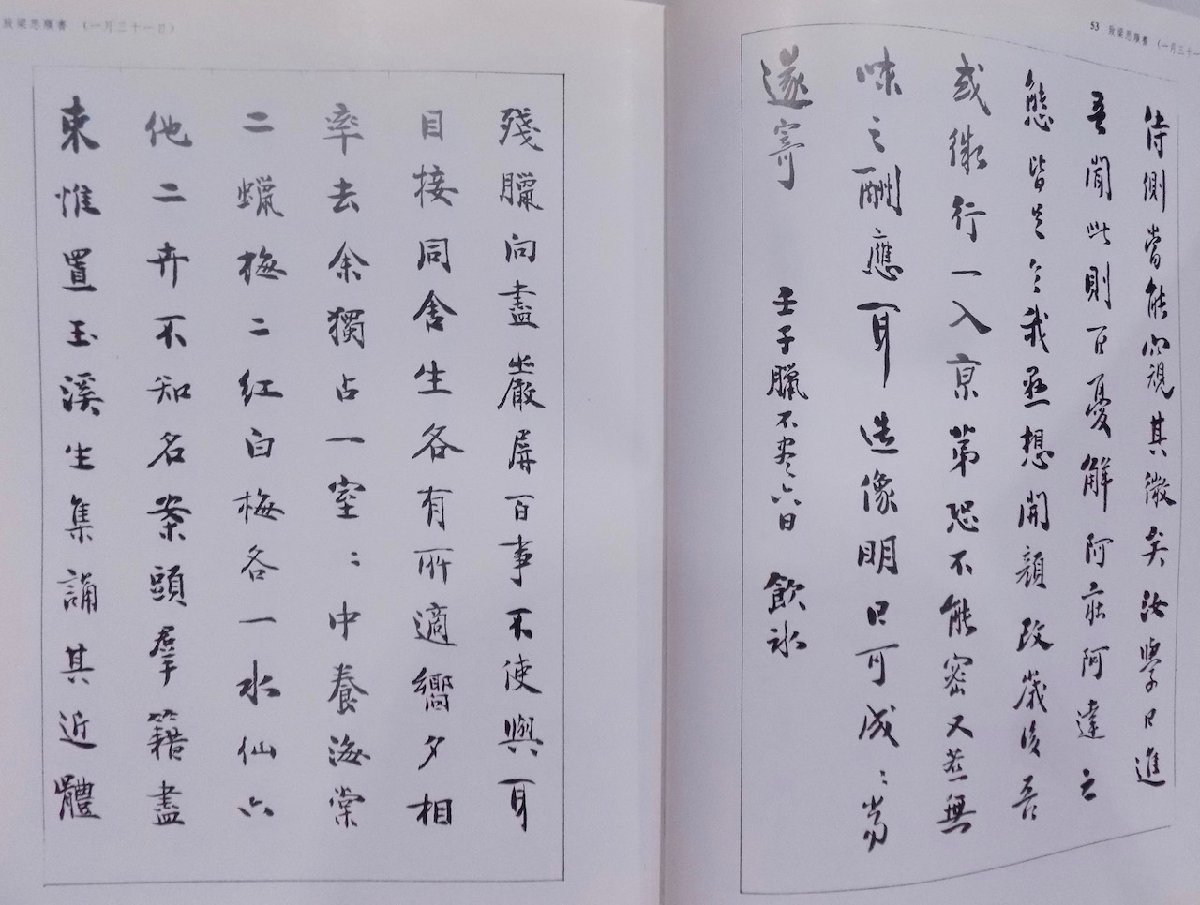 53 致梁思順書 (一月三十一
侍側當能視其微矣汝學日進
吾聞此則百憂解阿莊阿達之
態皆足令我想開顏改歲後吾
或微行一入京第恐不能密又益無
味之酬應耳造像明日可成〻當
遂寄
壬子臘不盡六日 飲冰
致梁思順書 (一月三十一日)
殘臘向盡嚴屏百事不使與耳
目接同舍生各有所適嚮夕相
率去余獨占一室〻中養海棠
二蠟梅二紅白梅各一水仙六
他二卉不知名案頭羣籍盡
束惟置玉溪生集誦其近體